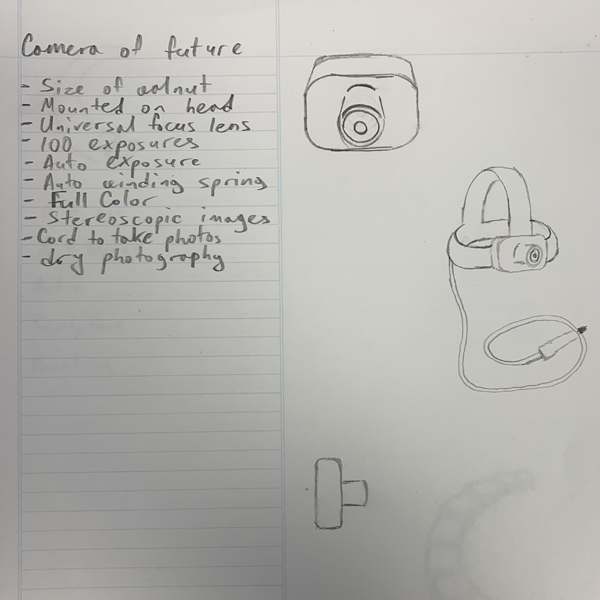 Camera of future
- Size of walnut
- Mounted on head
- Universal focus lens
- 100 exposures
- Auto exposure
- Auto winding spring
- Full Color
- Stereoscopic images
- Cord to take photos
- dry photography